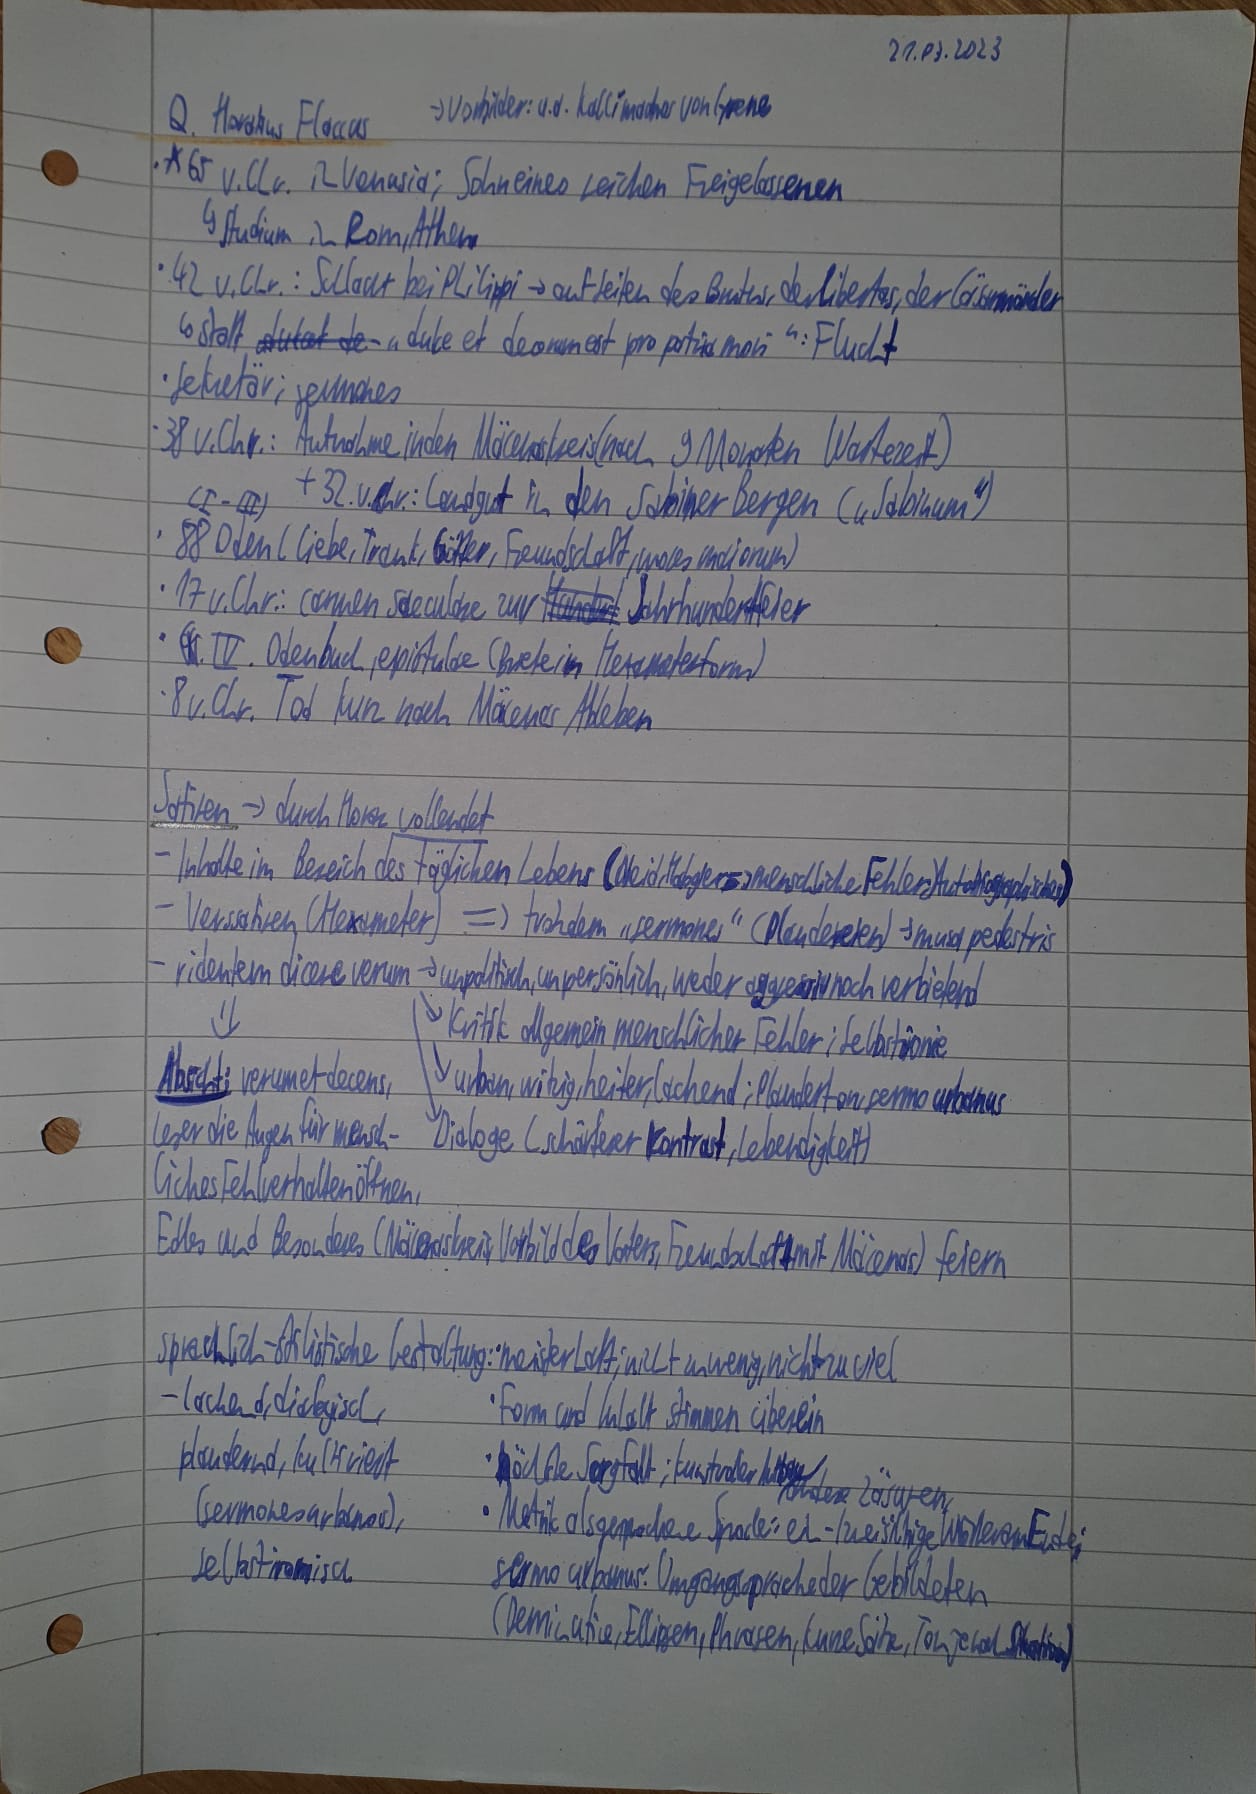 21.03.2023
Q. Horatius Flaccus → Vorbilder: u.a. Kallimachos von Cyrene
· *65 v.Chr. in Venusia; Sohn eines reichen Freigelassenen
↳ Studium in Rom, Athen
· 42 v.Chr.: Schlacht bei Philippi → auf Seiten des Brutus, der libertas, der Cäsarmörder
↳ statt „dulce et decorum est pro patria mori“: Flucht
· Sekretär; sermones
· 38 v.Chr.: Aufnahme in den Mäcenaskreis (nach 9 Monaten Wartezeit)
(I-III) + 32. v.Chr.: Landgut in den Sabiner Bergen („Sabinum“)
· 88 Oden (Liebe, Trank, Götter, Freundschaft, mores maiorum)
· 17 v.Chr.: carmen saeculare zur Jahrhundertfeier
· IV. Odenbuch, epistulae (Briefe in Hexameterform)
· 8 v.Chr. Tod kurz nach Mäcenas Ableben
Satiren → durch Horaz vollendet
- Inhalte im Bereich des täglichen Lebens (Neid, Habgier → menschliche Fehler; Autobiographisches)
- Verssatiren (Hexameter) => trotzdem „sermones“ (Plaudereien) → musa pedestris
- ridentem dicere verum → unpolitisch, unpersönlich, weder aggressiv noch verbietend
⇓ ↘ Kritik allgemein menschlicher Fehler; Selbstironie
Absicht: verum et decens, ↘ urban, witzig, heiter, lachend; Plauderton, sermo urbanus
Leser die Augen für mensch- ↘ Dialoge (schärferer Kontrast, Lebendigkeit)
liches Fehlverhalten öffnen,
Edles und Besonderes (Mäcenaskreis, Vorbild des Vaters, Freundschaft mit Mäcenas) feiern
sprachlich-stilistische Gestaltung: · meisterhaft; nicht zu wenig, nicht zu viel
- lachend, dialogisch, · Form und Inhalt stimmen überein
plaudernd, kultiviert · höchste Sorgfalt; kunstvoller
(sermones urbanos), Zäsuren,
· Metrik als gesprochene Sprache: ein-/zweisilbige Wörter am Ende;
selbstironisch sermo urbanus: Umgangssprache der Gebildeten
(Deminutive, Ellipsen, Phrasen, kurze Sätze, Ton je nach Situation)